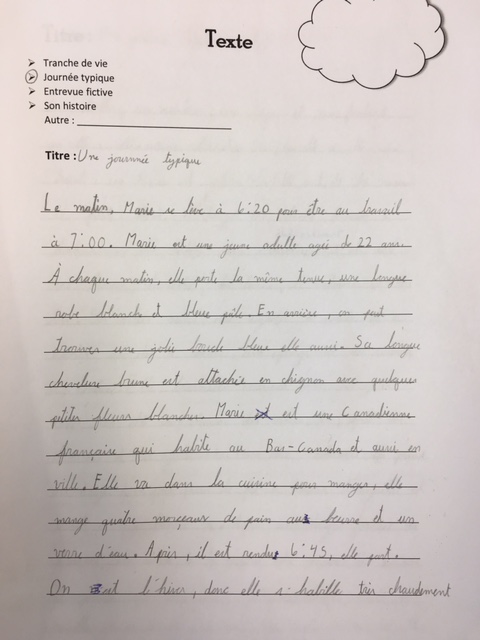 Texte
Tranche de vie
Journée typique
Entrevue fictive
Son histoire
Autre :
Titre : Une journnée typique
Le matin, Marie se lève à 6:20 pour être au travail
à 7:00. Marie est une jeune adulte agée de 22 ans.
À chaque matin, elle porte la même tenue, une longue
robe blanche et bleue pâle. En arrière, on peut
trouver une jolie boucle bleue elle aussi. Sa longue
chevelure brune est attachée en chignon avec quelques
petites fleurs blanches. Marie est une Canadienne
française qui habite au Bas-Canada et aussi en
ville. Elle va dans la cuisine pour manger, elle
mange quatre morceaux de pain au beurre et un
verre d'eau. Après, il est rendu 6:45, elle part.
On est l'hiver, donc elle s'habille très chaudement